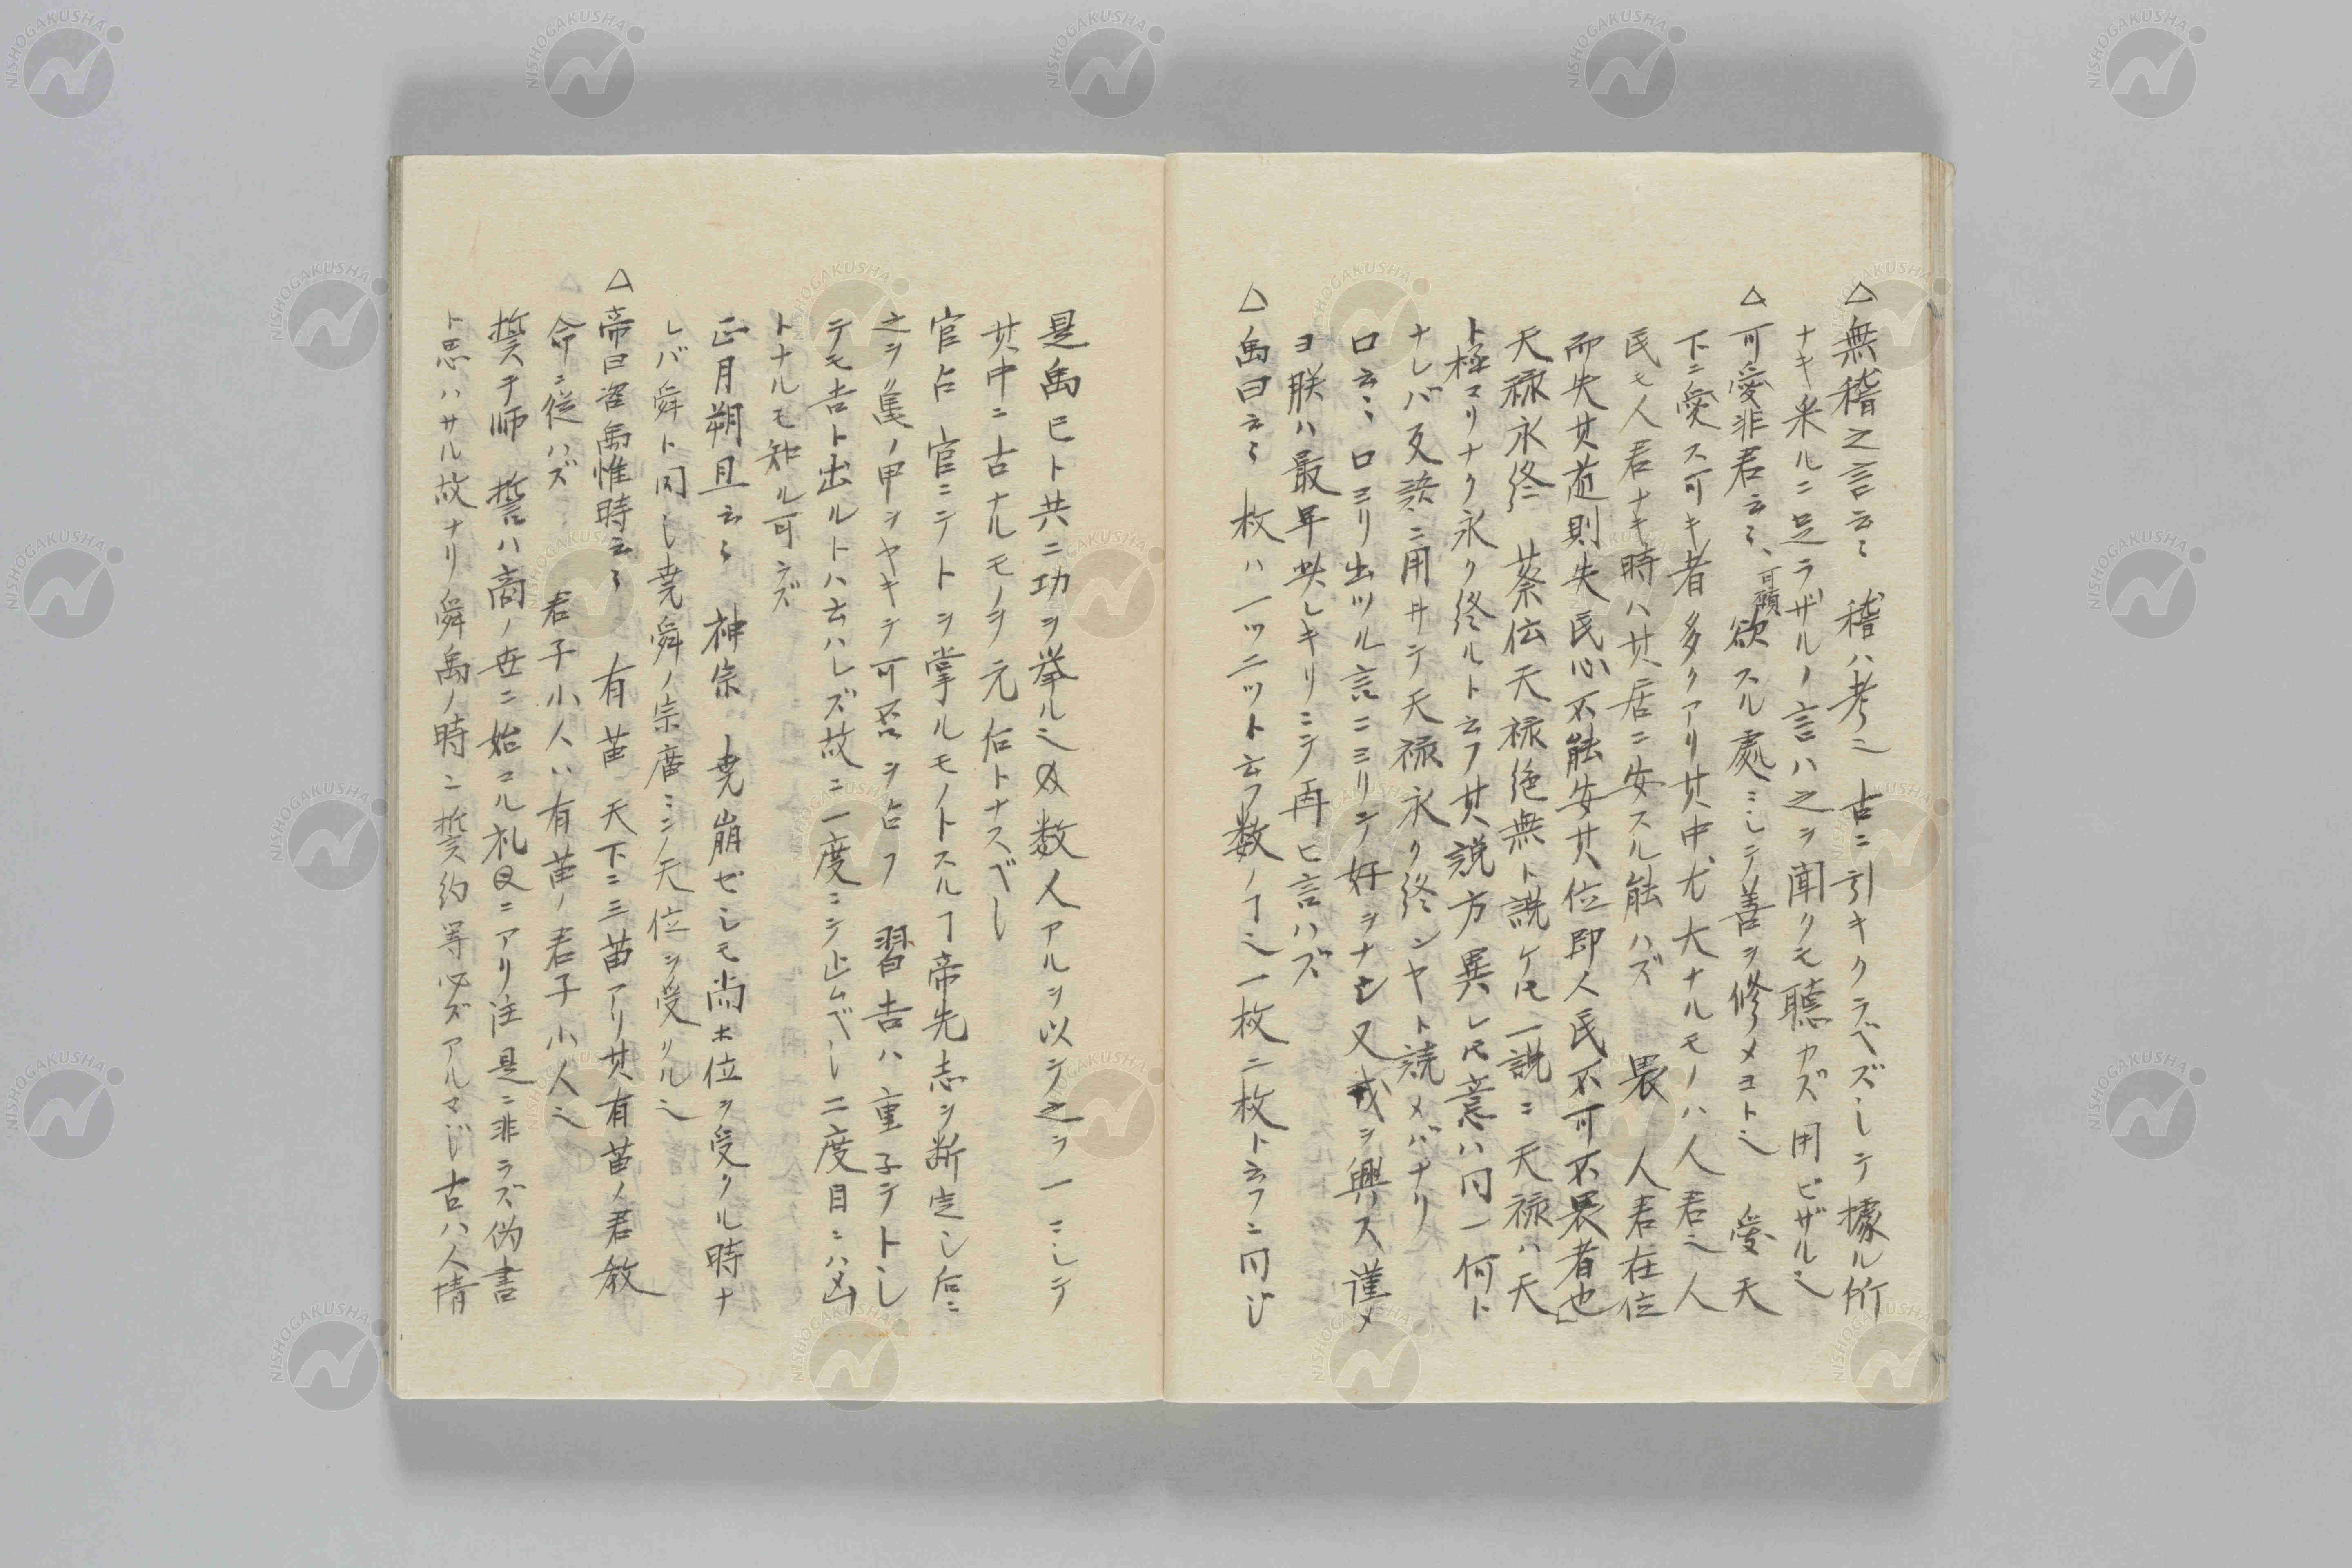 △無稽之言云〻 稽ハ考也 古ニ引キクラベズシテ據ル所
ナキ来ルニ足ラザルノ言ハ之ヲ聞クモ聴カズ用ヒザル也
△可愛非君云〻、可願欲スル處ニシテ善ヲ修メヨト也 愛 天
下ニ愛ス可キ者多クアリ其中尤大ナルモノハ人君也人
民モ人君ナキ時ハ其居ニ安スル能ハズ 畏 人君在位
而失其道則失民心不能安其位即人民不可不畏者也
天禄永終 蔡伝天禄絶無ト説ケ𪜈一説ニ天禄ハ天
ト極マリナク永ク終ルト云フ其説方異レ𪜈意ハ同一何ト
ナレバ反語ニ用ヰテ天禄永ク終ンヤト読メバナリ
口云〻 口ヨリ出ツル言ニヨリテ好ヲナシ又戎ヲ興ス謹メ
ヨ朕ハ最早此レキリニテ再ヒ言ハズ
△禹曰云〻 枚ハ一ツ二ツト云フ数ノヿ也一枚二枚ト云フニ同ジ
是禹已ト共ニ功ヲ挙ル也 数人アルヲ以テ之ヲ一ニシテ
其中ニ古ナルモノヲ元后トナスベシ
官占 官ニテトヲ掌ルモノトスルヿ帝先志ヲ断定シ后ニ
之ヲ亀ノ甲ヲヤキテ可否ヲ占フ 習吉ハ重子テトシ
テモ吉ト出ルトハ云ハレズ故ニ一度ニテ止ムベシ二度目ニハ凶
トナルモ知ル可ラズ
正月朔旦云〻 神宗 堯崩ゼシモ尚ホ位ヲ受クル時ナ
レバ舜ト同シ堯舜ノ宗廟ニテ天位ヲ受クル也
△帝曰咨禹惟時云〻 有苗 天下ニ三苗アリ其有苗ノ君教
命ニ従ハズ 君子小人ハ有苗ノ君子小人也
誓于師 誓ハ商ノ世ニ始マル礼ニアリ注是ニ非ラズ偽書
ト思ハサル故ナリ舜禹ノ時ニ誓約等必ズアルマジ古ハ人情